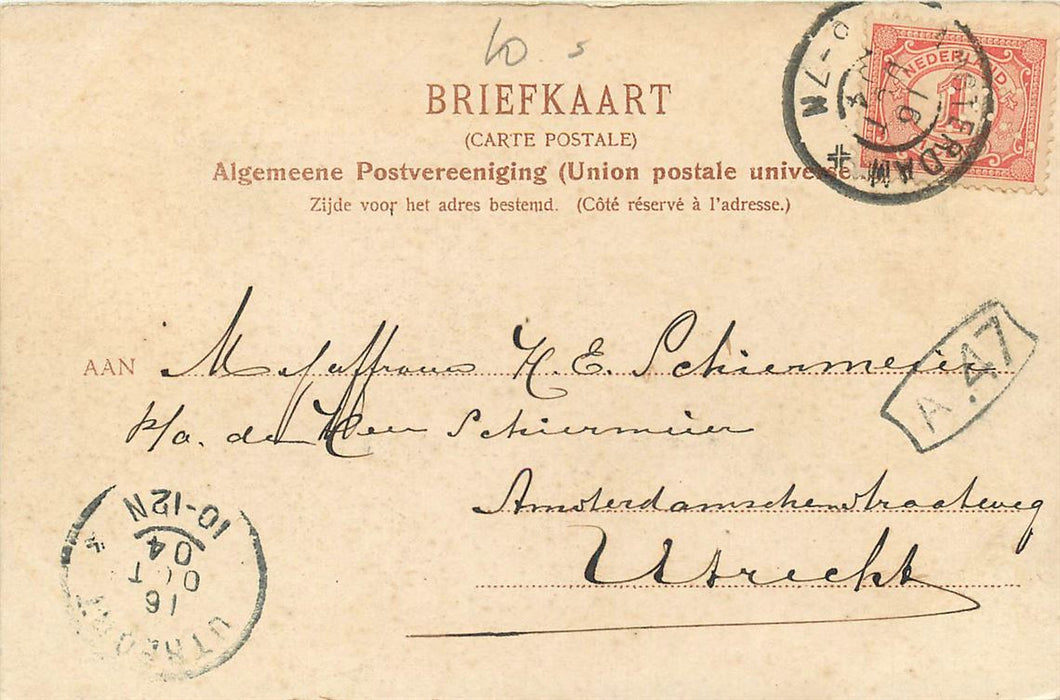 10. s
BRIEFKAART
(CARTE POSTALE)
Algemeene Postvereeniging (Union postale universe
Zijde voor het adres bestemd. (Côté réservé à l'adresse.)
NEDERLAND
1
AMSTERDAM
16
-7N
AAN Mejuffrouw H. E. Schiermeier
A.47
p/a. de Heer Schiermeier
Amsterdamschenstraatweg
Utrecht
10-12N
04
OCT
16
UTRECHT